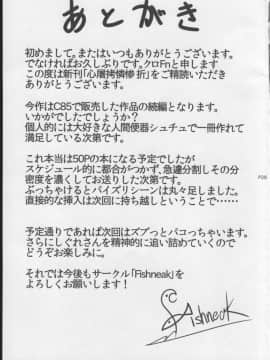 あとがき
初めまして。またはいつもありがとうございます。
でなければお久しぶりです。クロFnと申します
この度は新刊「心層拷憐惨折」をご精読いただき
ありがとうございます。
今作はC85で販売した作品の続編となります。
いかがでしたでしょうか?
個人的には大好きな人間便器シュチュで一冊作れて
満足している次第です。
これ本当は50Pの本になる予定でしたが
スケジュール的に都合がつかず、急遽分割しその分
密度を濃くしてお送りした次第です。
ぶっちゃけるとパイズリシーンは丸々足しました。
直接的な挿入は次回に持ち越しということで・・・
予定通りであれば次回はズブっとパコっちゃいます。
さらにしぐれさんを精神的に追い詰めていくので
どうぞお楽しみに。
それでは今後もサークル「Fishneak」を
よろしくお願いします!
Fishneak